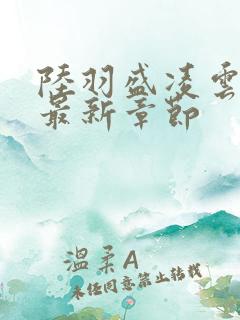 陸羽盛凌雲
最新章節
溫柔A
未經同意禁止轉載